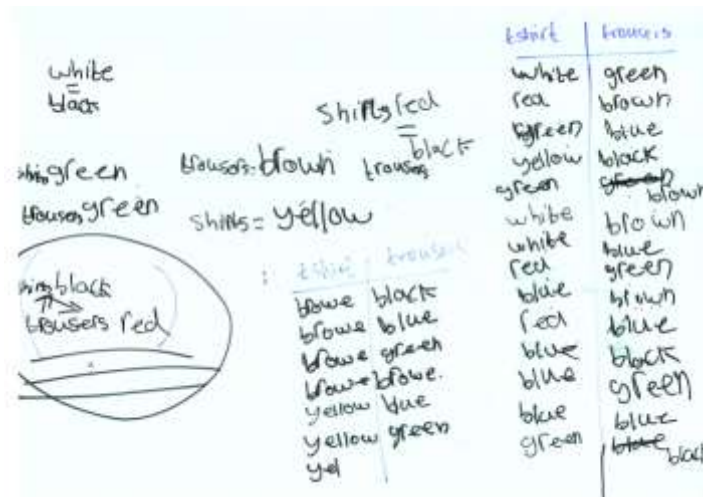 white
=
black
green
trousers green
black
trousers red
shirts red
=
black
trousers
trousers = brown
shirts = yellow
tshirt trousers
browe black
browe blue
browe green
browe browe.
yellow blue
yellow green
yel
tshirt trousers
white green
red brown
green blue
yellow black
green brown
white brown
white blue
red green
blue brown
red blue
blue black
blue green
blue blue
green black